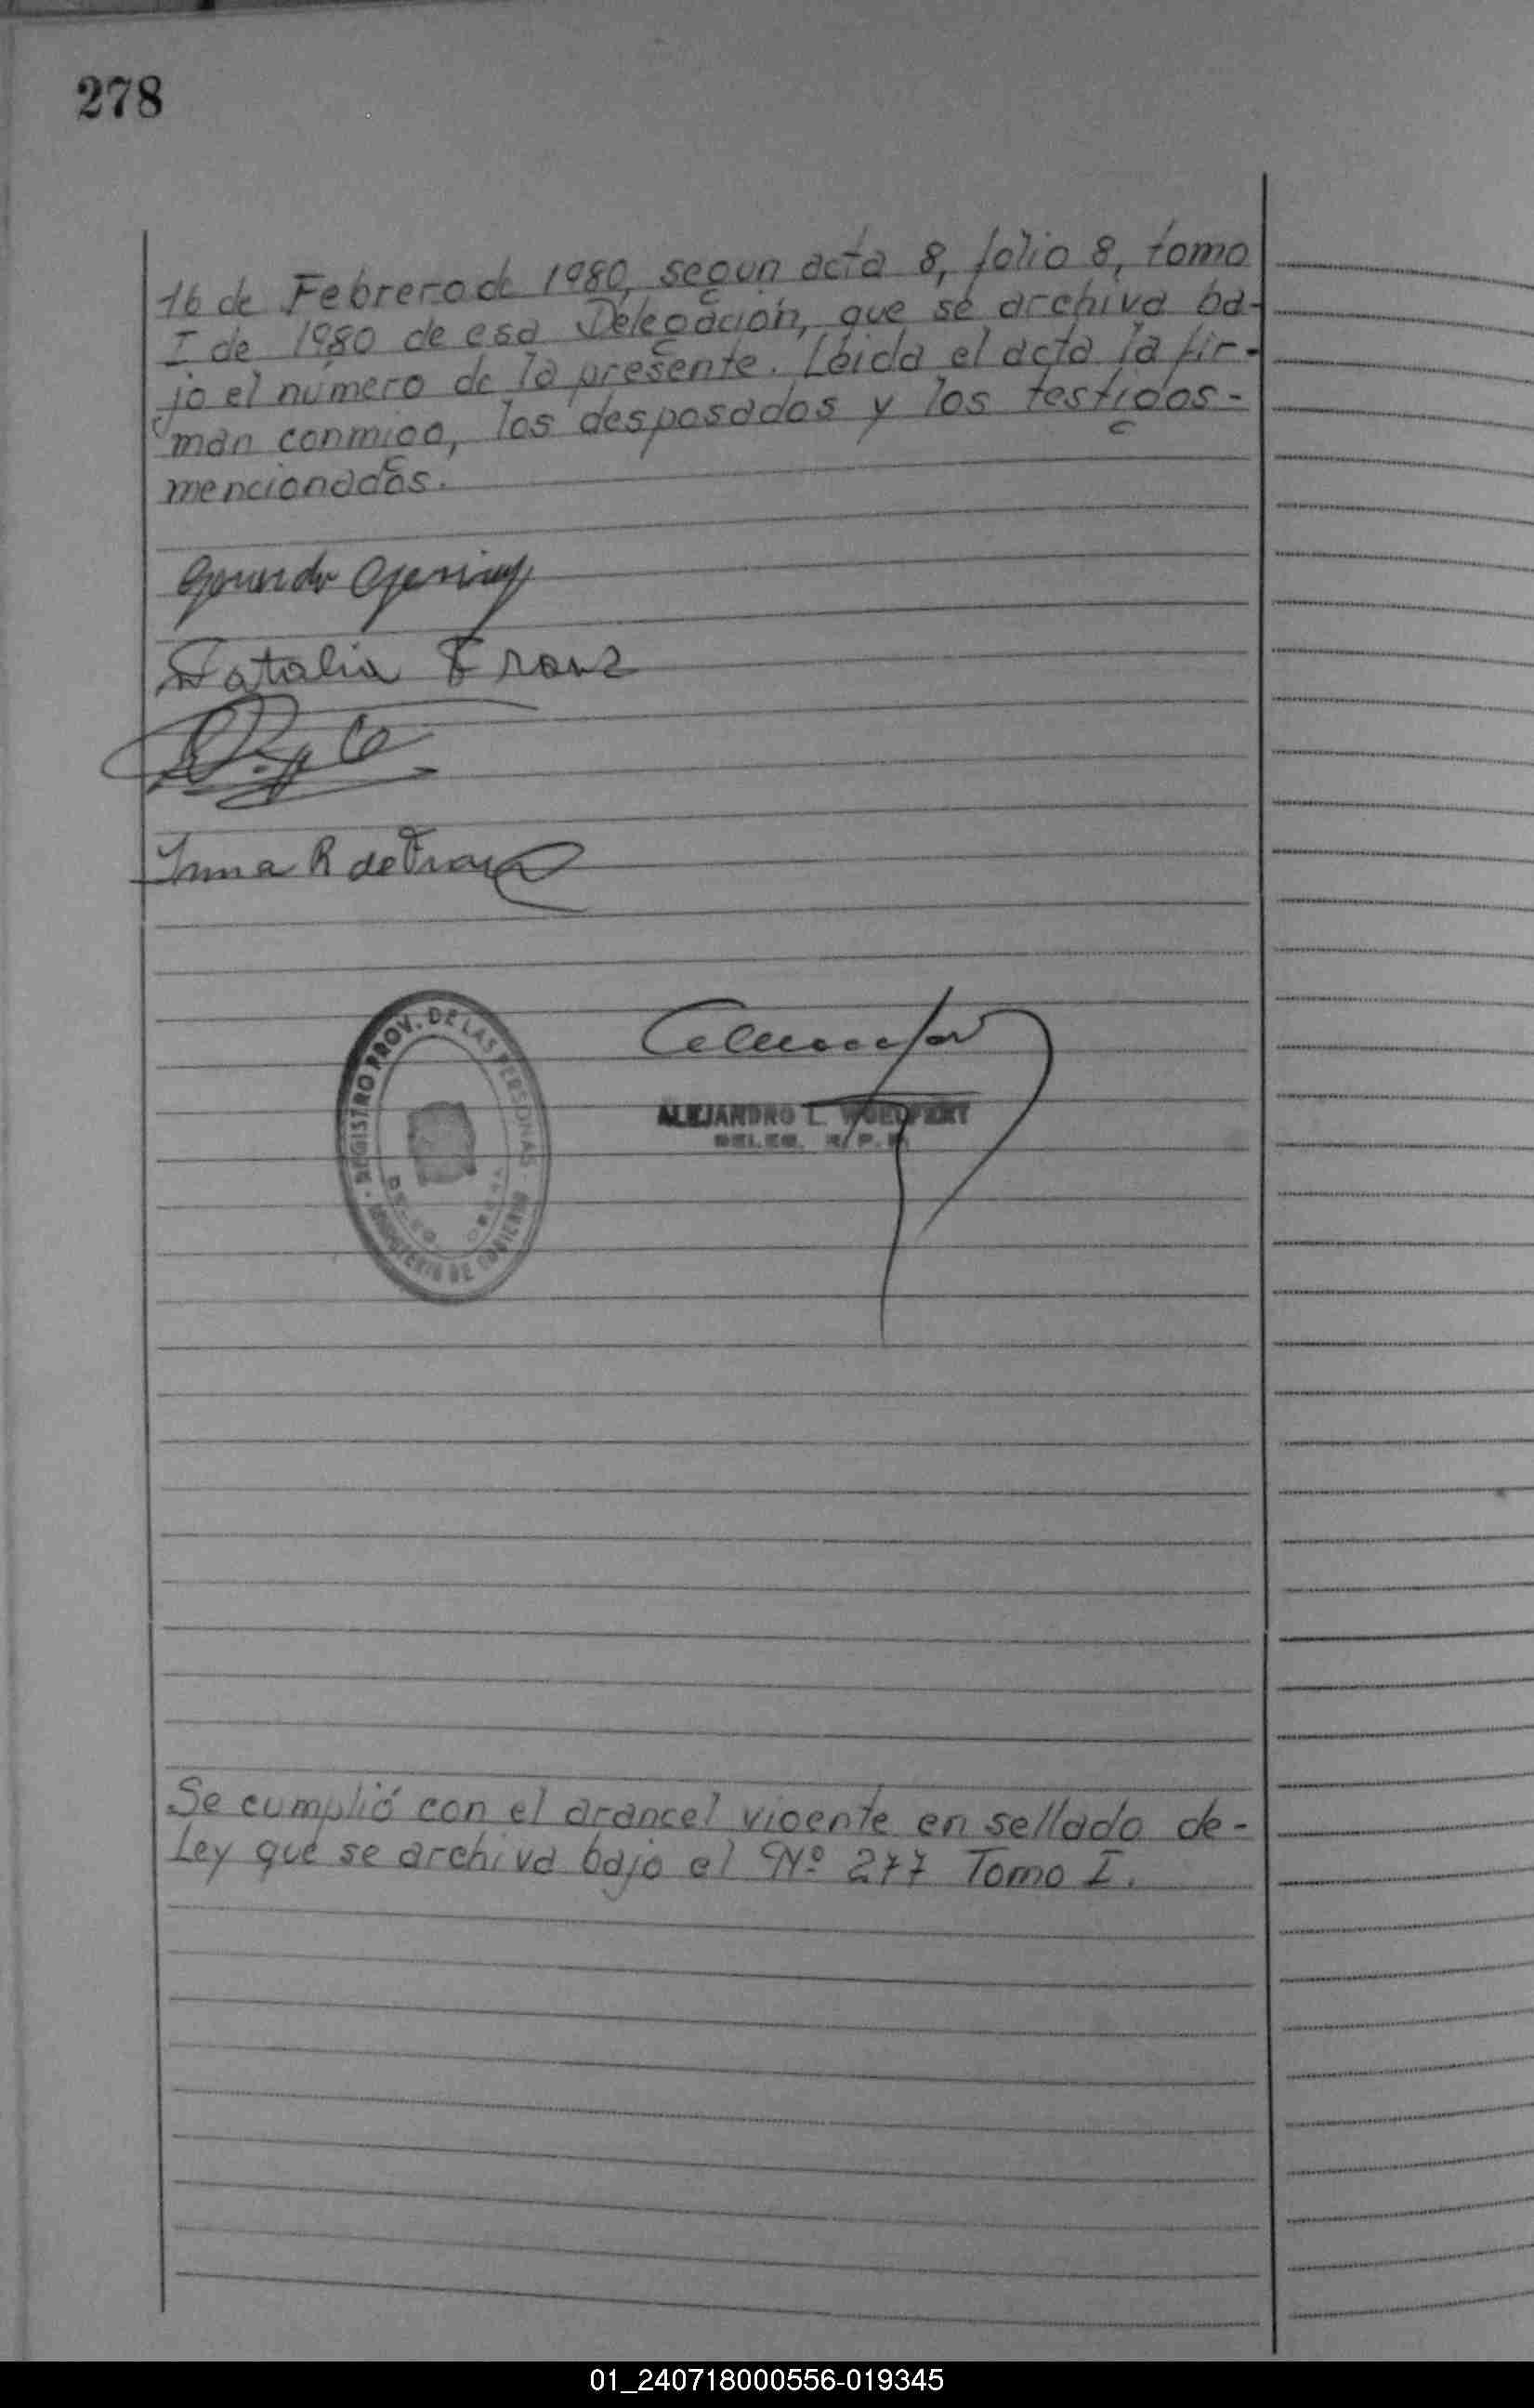 278
16 de Febrero de 1980, segun acta 8, folio 8, tomo
I de 1980 de esa Delegación, que se archiva ba-
jo el número de la presente. Leida el acta la fir-
man conmigo, los desposados y los testigos-
mencionados.
Natalia Franz
Irma R de Franz
REGISTRO PROV. DE LAS PERSONAS
MINISTERIO DE GOBIERNO
ALEJANDRO L.
DELEG. R.P.P.
Se cumplió con el arancel vigente en sellado de-
Ley que se archiva bajo el Nº 277 Tomo I.
01_240718000556-019345